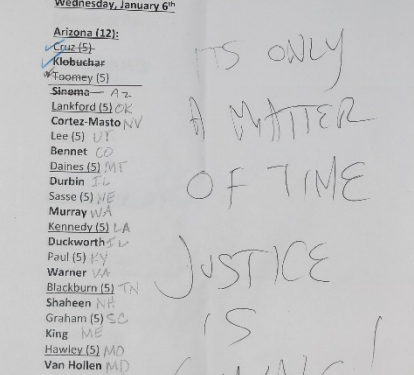 Wednesday, January 6th
Arizona (12):
Cruz (5)
Klobuchar
Toomey (5)
Sinema AZ
Lankford (5) OK
Cortez-Masto NV
Lee (5) UT
Bennet CO
Daines (5) MT
Durbin IL
Sasse (5) NE
Murray WA
Kennedy (5) LA
Duckworth IL
Paul (5) KY
Warner VA
Blackburn (5) TN
Shaheen NH
Graham (5) SC
King ME
Hawley (5) MO
Van Hollen MD
ITS ONLY
A MATTER
OF TIME
JUSTICE
IS